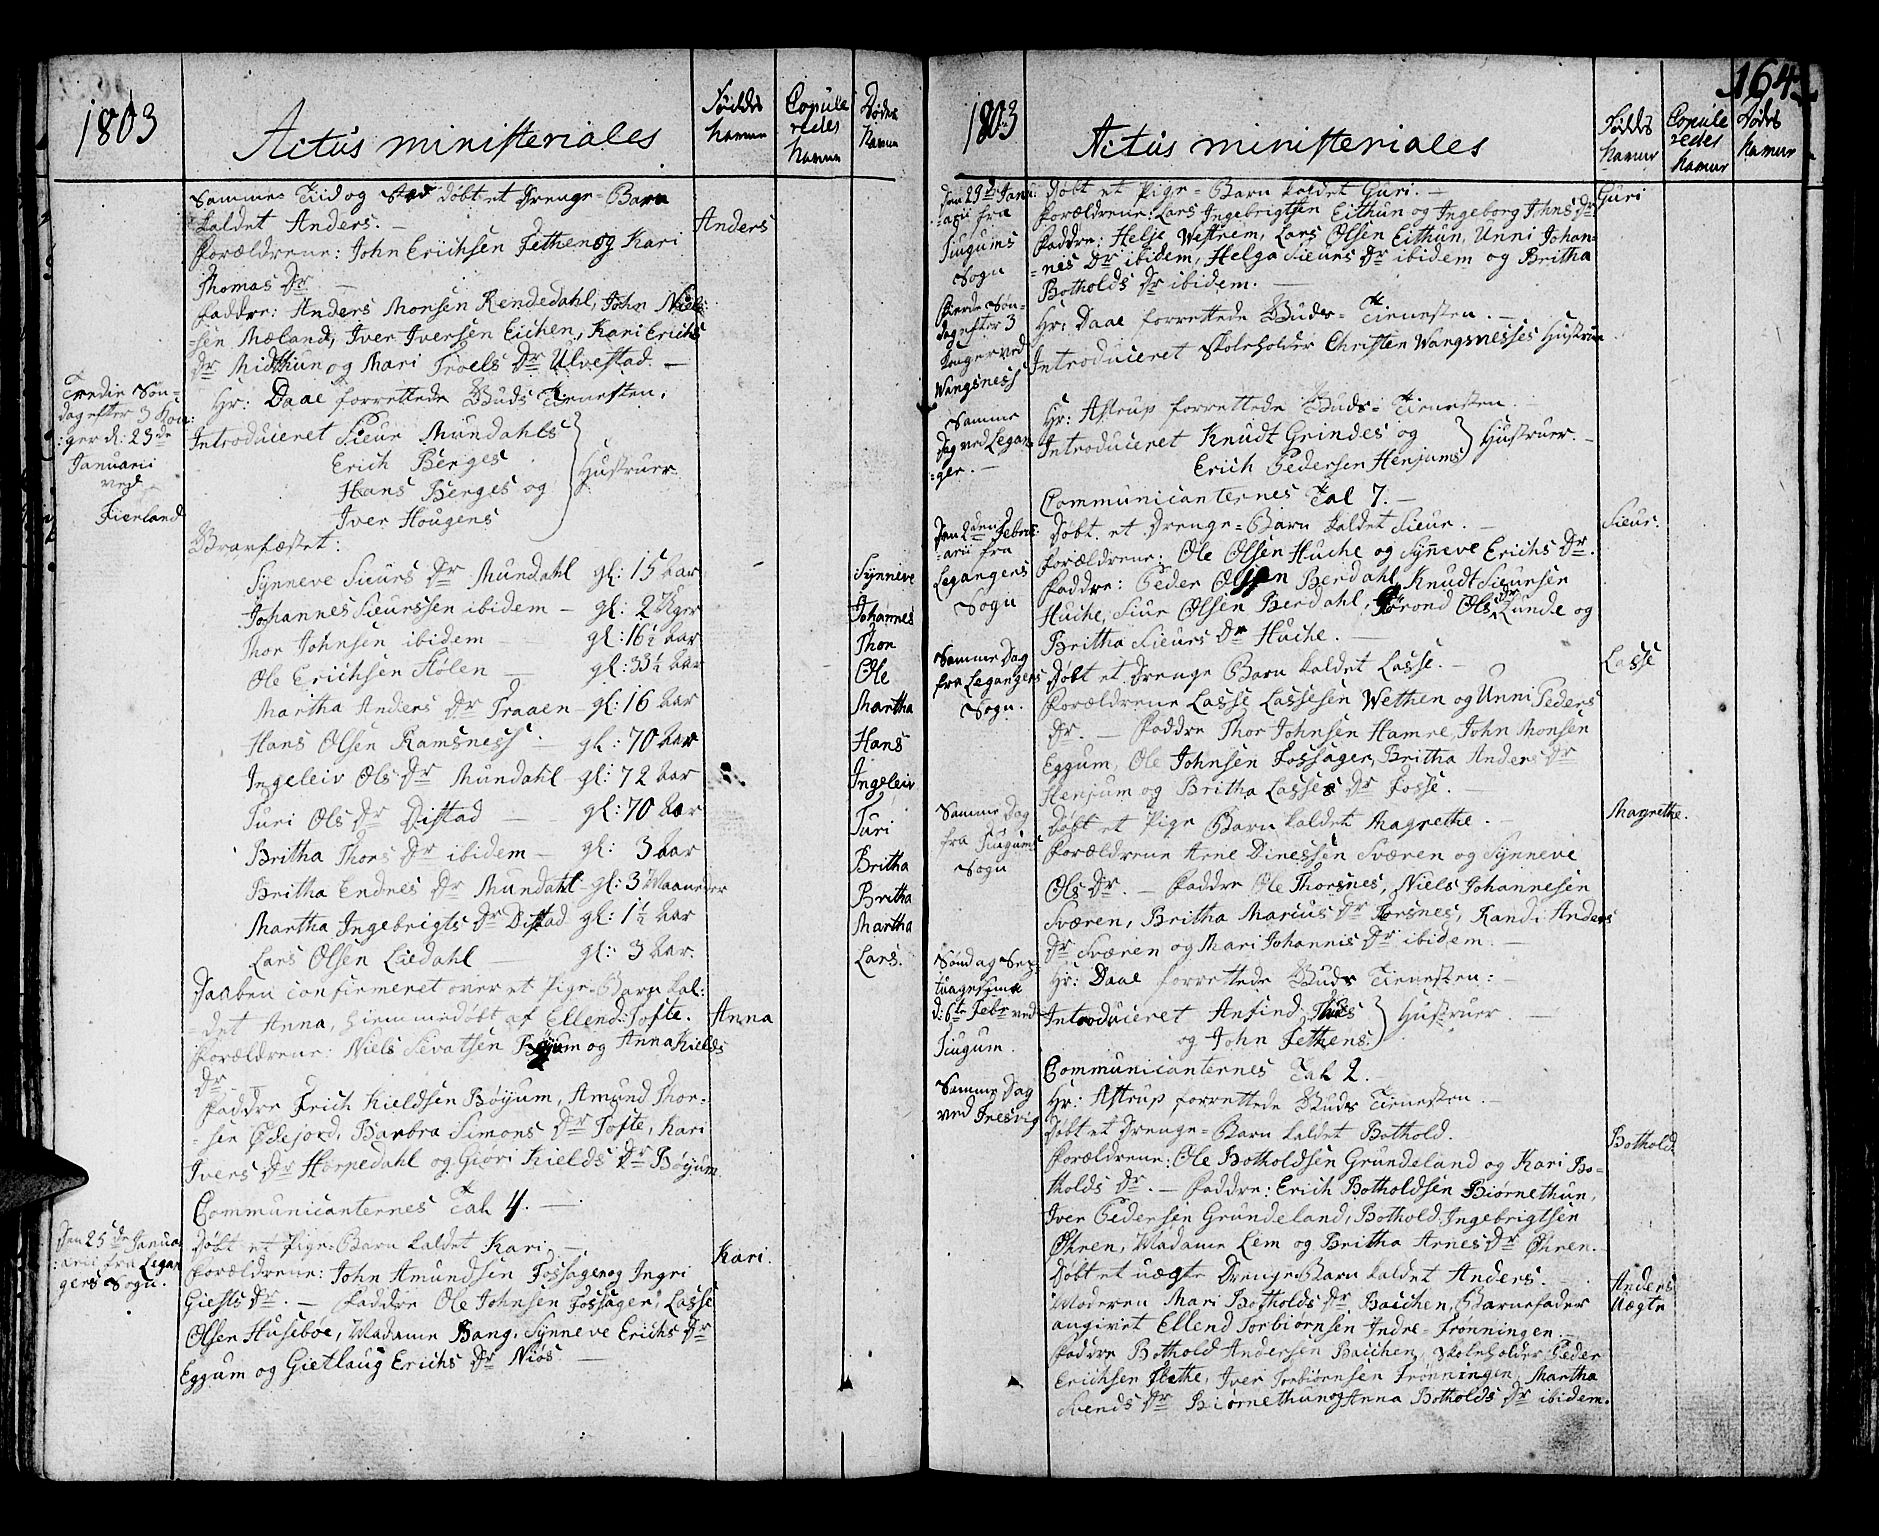 1803
Actus ministeriales
Fødde
Navne
Copule
redes
Navne
Dødes
Navne
Sammes Tiid og Sted døbt et Drenge-Barn
kaldet Anders. -
Anders
Forældrene: John Erichsen Fethen og Kari
Thomas Dr. -
Faddre: Anders Monsen Rendedahl, John Niel-
-sen Mæland, Iver Iversen Eichen, Kari Erichs
Dr Midthun og Mari Troels Dr Ulvestad. -
Tredie Søn-
dag efter 3 Kon:
:ger d: 23de
Januarii
ved
Fierland
Hr: Daae forrettede Guds Tienesten.
Introduceret Sieur Mundahls
Erich Berges
Hans Berges og
Iver Hougens
Hustruer.
Gravfæstet:
Synneve Sieurs Dr Mundahl gl: 15 Aar
Synneve
Johannes Sieurssen ibidem - gl: 2 Uger
Johannes
Thor Johnsen ibidem - gl: 16½ Aar
Thor
Ole Erichsen Stølen - gl: 33½ Aar
Ole
Martha Anders Dr Traaen - gl: 16 Aar
Martha
Hans Olsen Ramsness - gl: 70 Aar
Hans
Ingeleiv Ols Dr Mundahl - gl: 72 Aar
Ingeleiv
Turi Ols Dr Distad - gl: 70 Aar
Turi
Britha Thors Dr ibidem - gl: 3 Aar
Britha
Britha Endres Dr Mundahl - gl: 3 Maaneder
Britha
Martha Ingebrigts Dr Distad gl: 1½ Aar
Martha
Lars Olsen Liedahl - gl: 3 Aar.
Lars.
Daaben confirmeret over et Pige-Barn kal-
-det Anna, hiemmedøbt af Ellend Tofte.
Anna
Forældrene: Niels Sivatsen Bøyum og Anna Kields
Dr -
Faddre Erich Kieldsen Bøyum, Amund Thor-
-sen Ødejord, Barbra Simons Dr Tofte, Kari
Ivers Dr Horpedahl og Giøri Kields Dr Bøyum
Communicanternes Tal 4. -
Den 25de Janua-
:arii fra Legan
gers Sogn.
Døbt et Pige-Barn kaldet Kari. -
Kari.
Forældrene: John Amundsen Fossagen og Ingri
Giests Dr. - Faddre Ole Johnsen Fossager, Lasse
Olsen Husebøe, Madame Bang, Synneve Erichs Dr
Eggum og Gietlaug Erichs Dr Niøs. -
1803
Actus ministeriales
164
Fødde
Navne
Copule
redes
Navne
Dødes
Navne
Den 29de Janu:
-arii fra
Tiugums
Sogn
Døbt et Pige-Barn kaldet Guri. -
Guri
Forældrene: Lars Ingebrigtsen Eithun og Ingeborg Johns Dr
Faddre: Helje Westrem, Lars Olsen Eithun, Unni Johan-
-nes Dr ibidem, Helga Sieurs Dr ibidem og Britha
Botholds Dr ibidem. -
Fierde Søn-
dag efter 3
Konger ved
Wangsness
Hr: Daae forrettede Guds-Tienesten. -
Introduceret Skoleholder Christen Wangsnesses Hustrue
Samme
Dag ved Legan-
-ger. -
Hr: Astrup forrettede Guds-Tienesten. -
Introduceret Knudt Grindes og
Erich Pedersen Henjums
Hustruer. -
Communicanternes Tal 7. -
Den 2den Febru-
-arii fra
Legangers
Sogn
Døbt et Drenge-Barn kaldet Sieur. -
Sieur.
Forældrene: Ole Olsen Huche og Synneve Erichs Dr.
Faddre: Peder Olsen Berdahl, Knudt Sieursen
Huche, Siur Olsen Berdahl, Gørond Ols Dr Lunde og
Britha Sieurs Dr Huche. -
Samme Dag
fra Legangers
Sogn.
Døbt et Drenge Barn kaldet Lasse. -
Lasse
Forældrene Lasse Lassesen Wethen og Unni Peders
Dr. - Faddre Thor Johnsen Hamre, John Monsen
Eggum, Ole Johnsen Fossager, Britha Anders Dr
Henjum og Britha Lasses Dr Fosse. -
Samme Dag
fra Tiugums
Sogn
Døbt et Pige Barn kaldet Magrethe. -
Magrethe.
Forældrene Arne Dinessen Sværen og Synneve
Ols Dr. - Faddre Ole Thorsnes, Niels Johannesen
Sværen, Britha Marcus Dr Torsnes, Randi Anders
Dr Sværen og Mari Johannis Dr ibidem. -
Søndag Sep-
tuagesima
d: 6te Febr ved
Tiugum.
Hr: Daae forrettede Guds Tienesten: -
Introduceret Anfind
og John Fethens
Hustruer. -
Communicanternes Tal 2. -
Samme Dag
ved Fresvig
Hr: Astrup forrettede Guds Tienesten. -
Døbt et Drenge-Barn kaldet Bothold.
Bothold
Forældrene: Ole Botholdsen Grundeland og Kari Bo-
tholds Dr. - Faddre: Erich Botholdsen Biørnethun,
Iver Pedersen Grundeland, Bothold Ingebrigtsen
Øhren, Madame Lem og Britha Arnes Dr Øhren. -
Døbt et uægte Drenge-Barn kaldet Anders. -
Anders
Uægte
Moderen Mari Botholds Dr Bacchen, Barnefader
angivet Ellend Torbiørnsen Indre-Frønningen. -
Faddre Bothold Andersen Bacchen, Skoleholder Peder
Erichsen Hethe, Iver Torbiørnsen Frønningen, Martha
Svends Dr Biørnethun og Anna Botholds Dr ibidem.